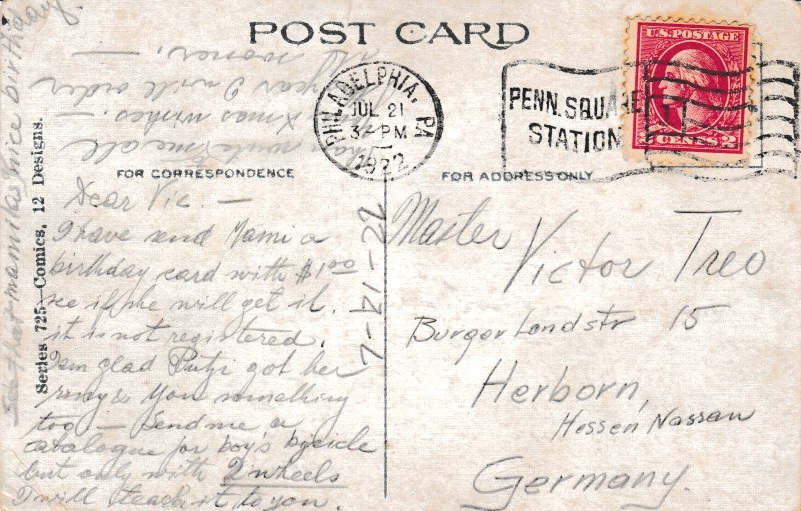 POST CARD
PHILADELPHIA, PA
JUL 21
3-PM
1922
PENN. SQUARE
STATION
U.S. POSTAGE
2 CENTS 2
FOR CORRESPONDENCE
FOR ADDRESS ONLY
Series 725—Comics, 12 Designs.
7-17-22
Dear Vic. —
I have send Mami a
birthday card with $1.00
see if she will get it.
it is not registered.
I am glad Putzi got her
ring & You something
too — Send me a
catalogue for boy's bycicle
but only with 2 wheels
I will teach it to you.
write me all
Xmas wishes.
year I will order
sooner. —
See that mami has nice birthday
Master
Victor Treo
Burger Landstr 15
Herborn,
Hessen Nassau
Germany.